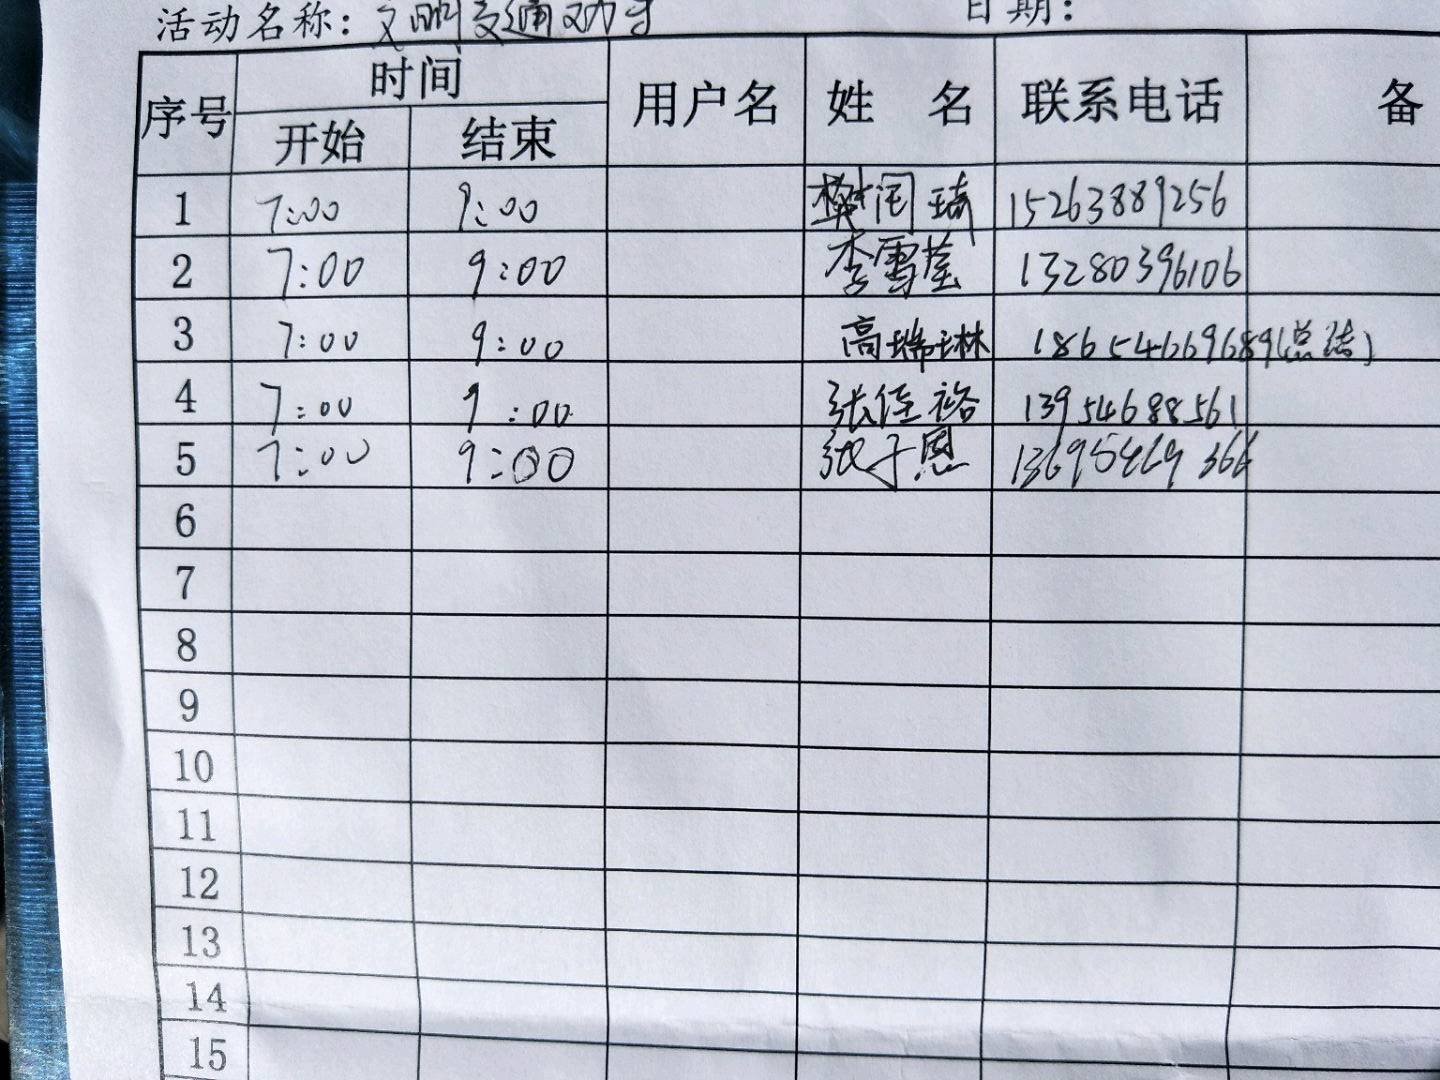 活动名称：文明交通劝导 日期：
序号 时间 用户名 姓 名 联系电话 备
开始 结束
1 7:00 9:00 琦 15263889256
2 7:00 9:00 李雪莹 13280396106
3 7:00 9:00 高瑞琳 18654669689(总结)
4 7:00 9:00 张佳裕 13954688561
5 7:00 9:00 张子恩 13695469366
6
7
8
9
10
11
12
13
14
15